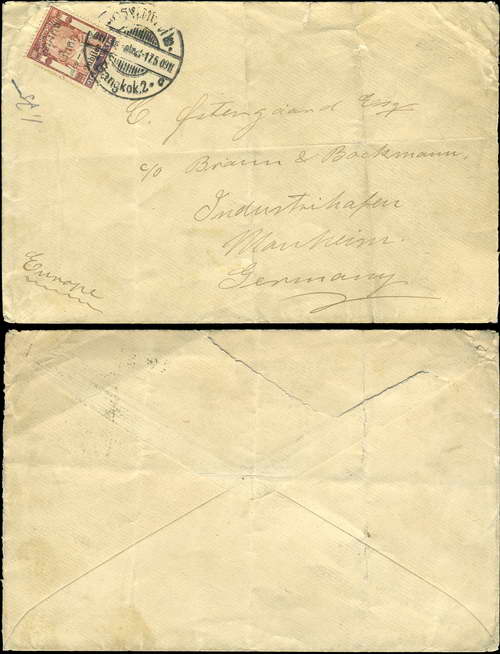 Bangkok.2.
C. Østengaard Esq
c/o Braun & Bockmann,
Industrihafen
Manheim.
Germany
Europe